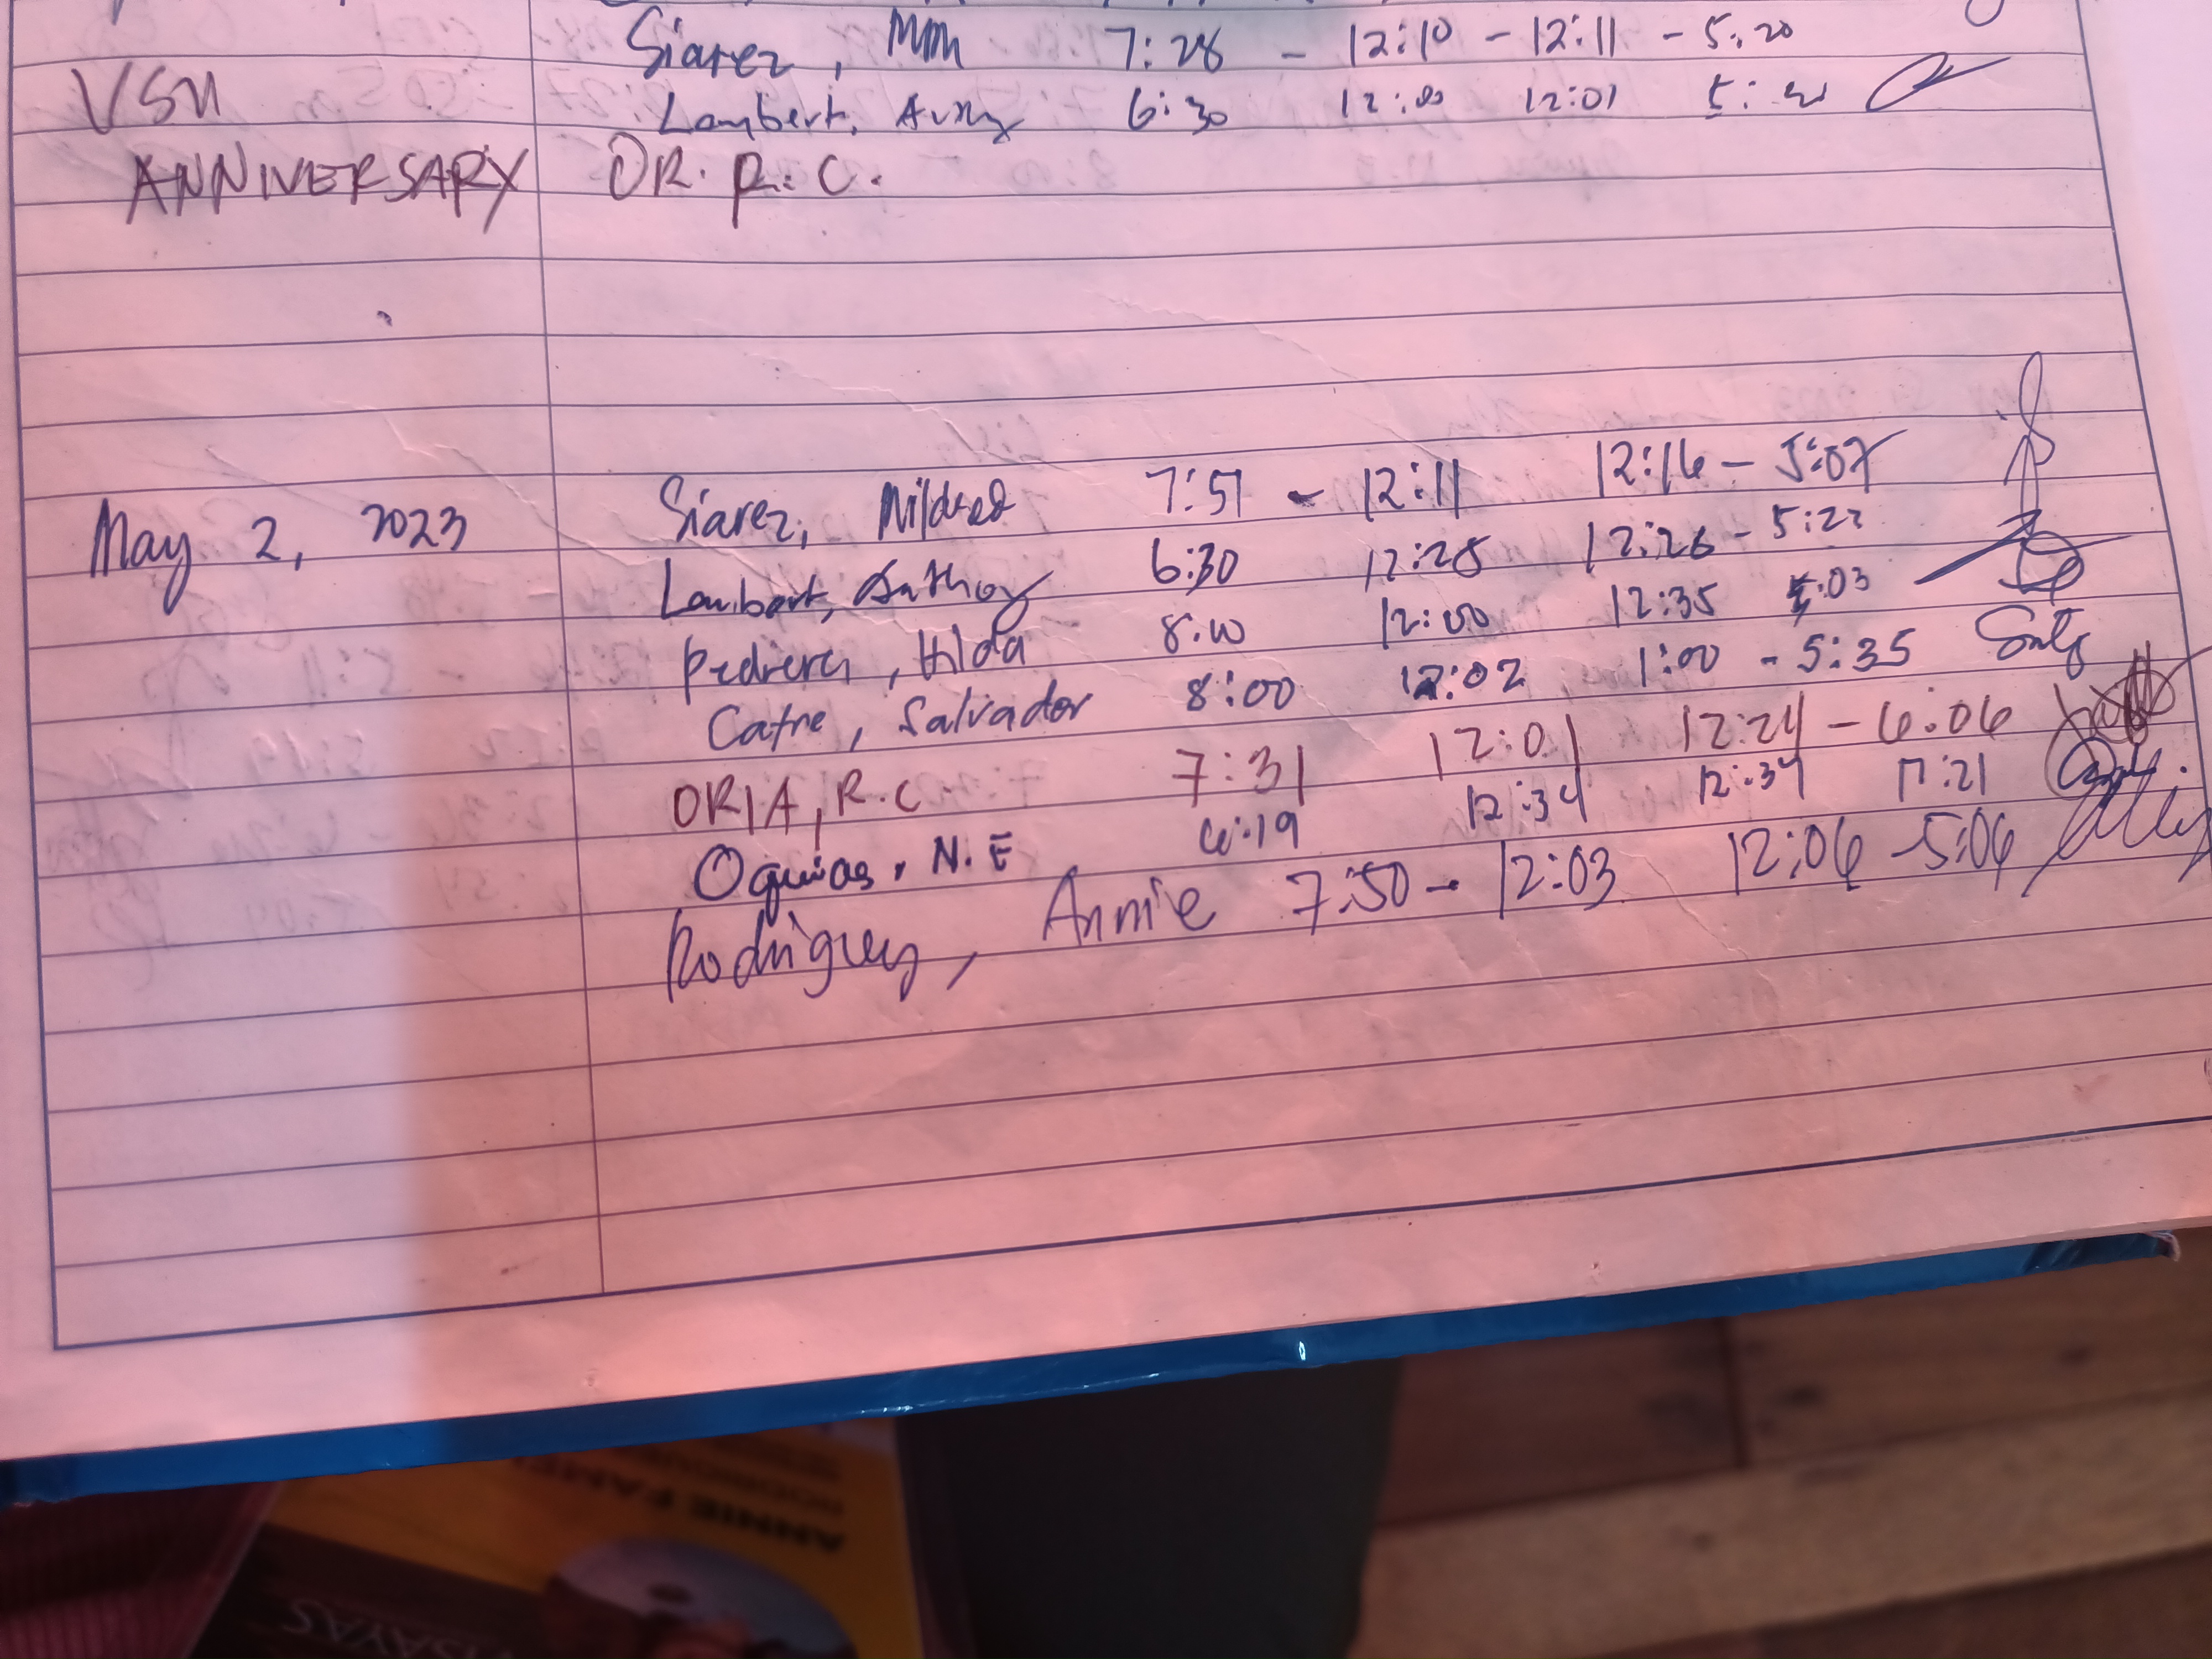 Siarez, MM 7:28 - 12:10 - 12:11 - 5:20
VSU
Lambert, 6:30 12:00 12:01 5:
ANNIVERSARY OR. R.C.
Siarez, Mildred 7:51 - 12:11 12:16 - 5:07
May 2, 2023
Lambert, Anthony 6:30 12:28 12:26 - 5:22
Pedrera, Hilda 8:00 12:00 12:35 5:03
Catre, Salvador 8:00 12:02 1:00 - 5:35
ORIA, R.C 7:31 12:01 12:24 - 6:06
Oquias, N.E 6:19 12:34 12:34 17:21
Rodriguez, Annie 7:50 - 12:03 12:06 - 5:06
ANNIE